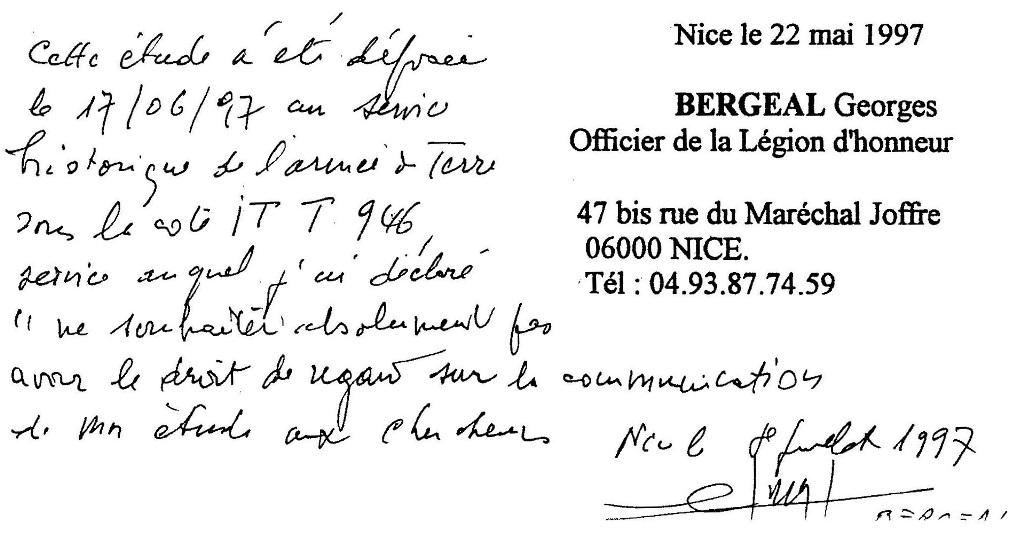 Nice le 22 mai 1997
BERGEAL Georges
Officier de la Légion d'honneur
47 bis rue du Maréchal Joffre
06000 NICE.
Tél : 04.93.87.74.59
Cette étude a été déposée
le 17/06/97 au service
historique de l'armée de Terre
sous la cote 1T T 946,
service auquel j'ai déclaré
" ne souhaiter absolument pas
avoir le droit de regard sur la communication
de mon étude aux chercheurs
Nice le 8 juillet 1997
BERGEAL